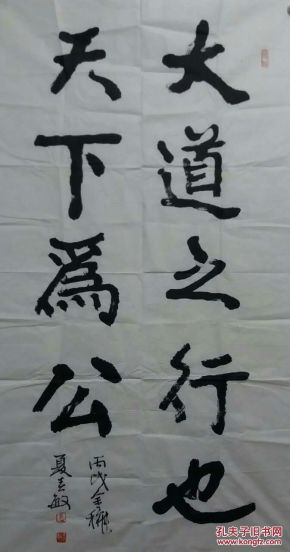 大道之行也
天下爲公
丙戌金秋
夏
孔夫子旧书网